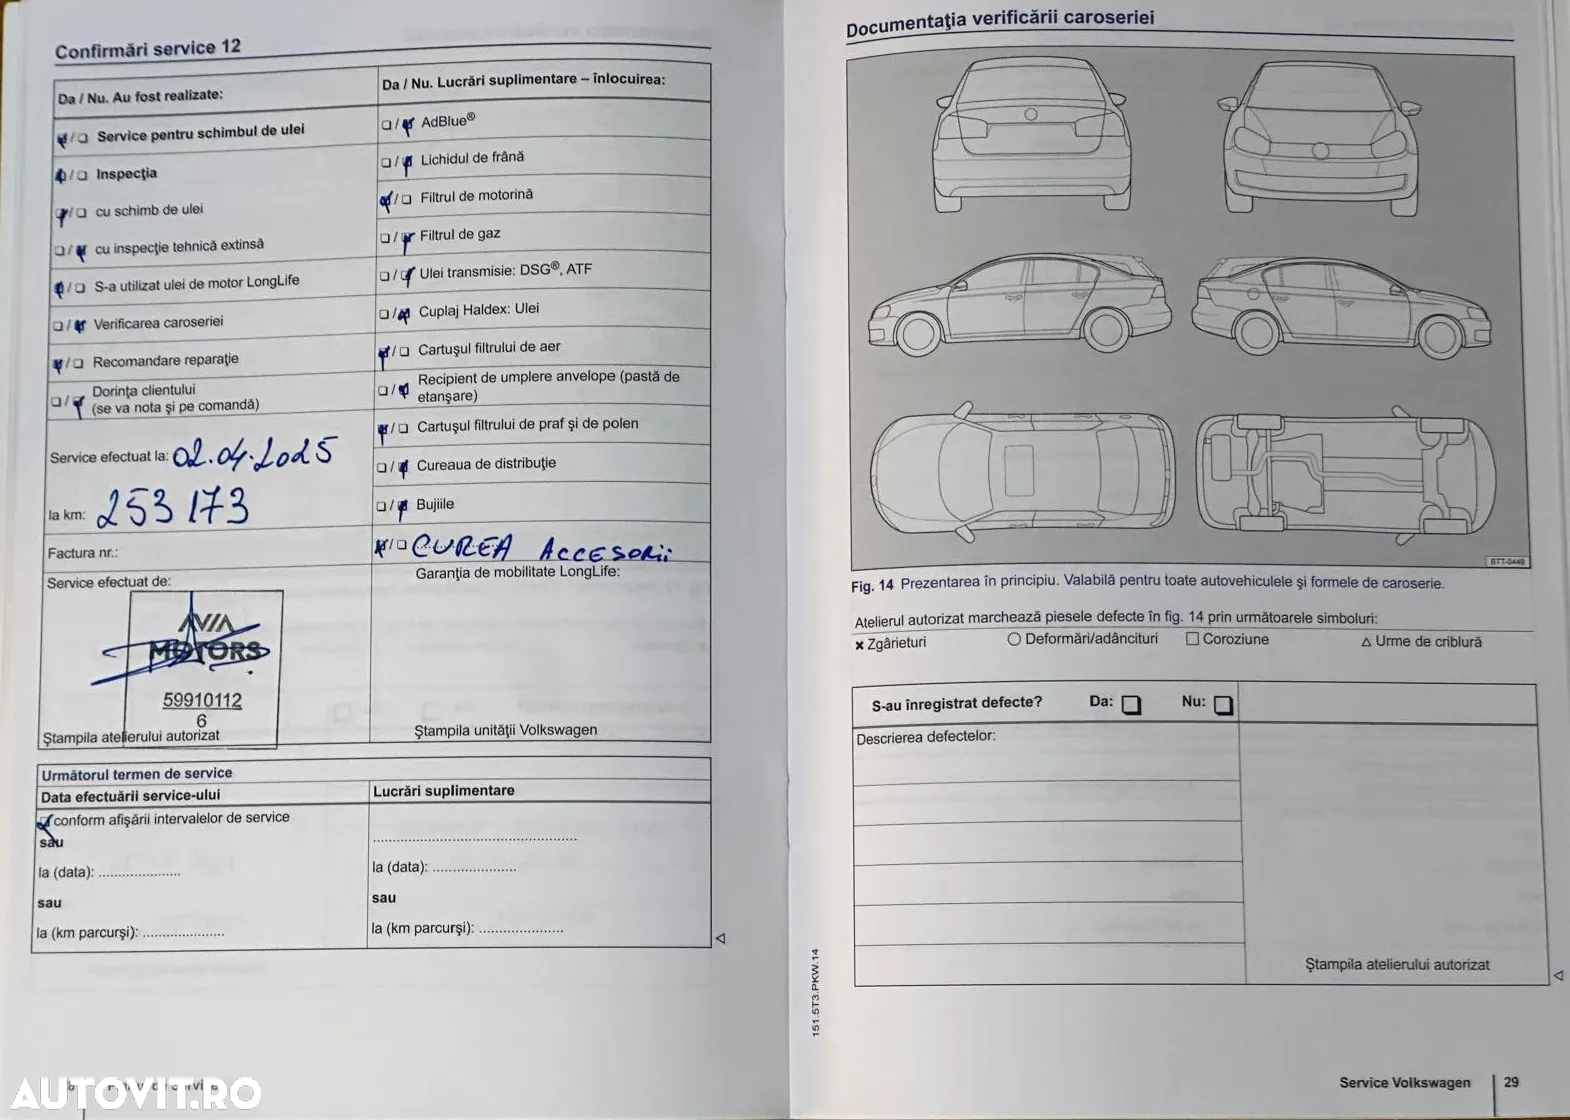 Confirmări service 12
Da / Nu. Au fost realizate:
Service pentru schimbul de ulei
Inspecţia
cu schimb de ulei
cu inspecţie tehnică extinsă
S-a utilizat ulei de motor LongLife
Verificarea caroseriei
Recomandare reparaţie
Dorinţa clientului
(se va nota şi pe comandă)
Service efectuat la: 02.04.2025
la km: 253 173
Factura nr.:
Service efectuat de:
AVIA
MOTORS
59910112
6
Ştampila atelierului autorizat
Da / Nu. Lucrări suplimentare – înlocuirea:
AdBlue®
Lichidul de frână
Filtrul de motorină
Filtrul de gaz
Ulei transmisie: DSG®, ATF
Cuplaj Haldex: Ulei
Cartuşul filtrului de aer
Recipient de umplere anvelope (pastă de
etanşare)
Cartuşul filtrului de praf şi de polen
Cureaua de distribuţie
Bujiile
CUREA ACCESORII
Garanţia de mobilitate LongLife:
Ştampila unităţii Volkswagen
Următorul termen de service
Data efectuării service-ului
conform afişării intervalelor de service
sau
la (data): ....................
sau
la (km parcurşi): ....................
Lucrări suplimentare
..................................................
la (data): ....................
sau
la (km parcurşi): ....................
AUTOVIT.RO
Documentaţia verificării caroseriei
BTT-0449
Fig. 14 Prezentarea în principiu. Valabilă pentru toate autovehiculele şi formele de caroserie.
Atelierul autorizat marchează piesele defecte în fig. 14 prin următoarele simboluri:
× Zgârieturi ○ Deformări/adâncituri □ Coroziune △ Urme de criblură
S-au înregistrat defecte? Da: □ Nu: □
Descrierea defectelor:
Ştampila atelierului autorizat
151.5T3.PKW.14
Service Volkswagen 29